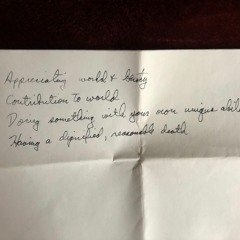 Appreciating world & beauty
Contribution to world
Doing something with your own unique abili
Having a dignified, reasonable death